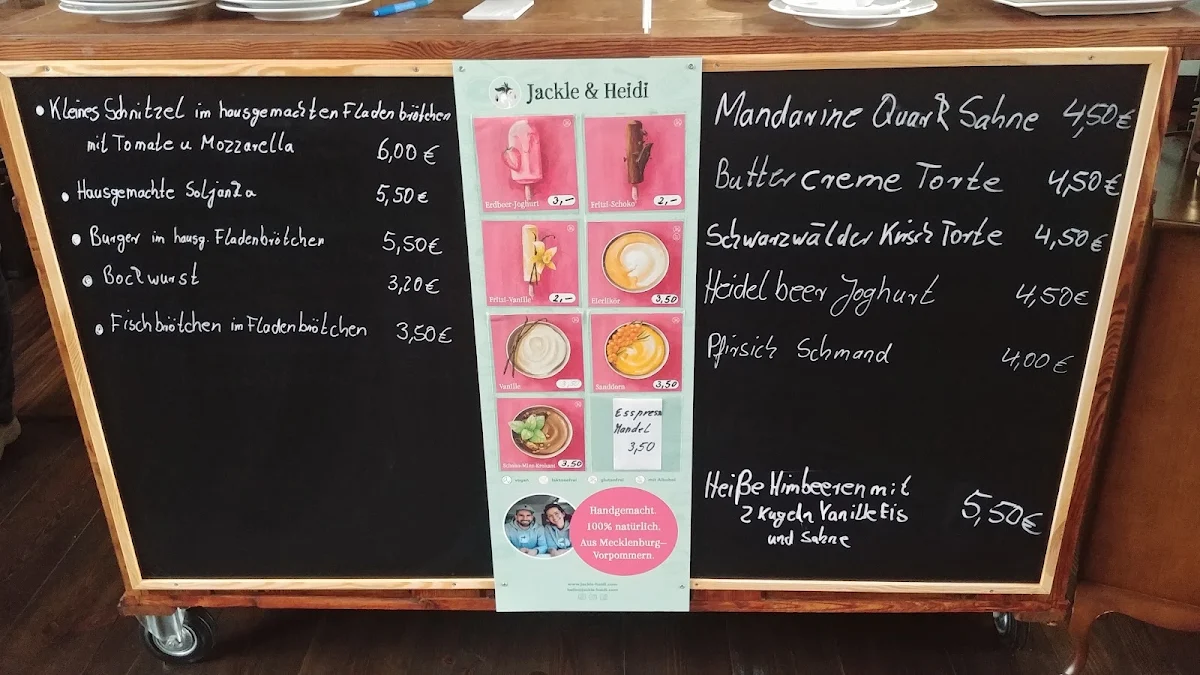 • Kleines Schnitzel im hausgemachten Fladenbrötchen
mit Tomate u Mozzarella 6,00 €
• Hausgemachte Soljanka 5,50 €
• Burger im hausg. Fladenbrötchen 5,50 €
• Bockwurst 3,20 €
• Fischbrötchen im Fladenbrötchen 3,50 €
Jackle & Heidi
Erdbeer-Joghurt 3,-
Fritzi-Schoko 2,-
Fritzi-Vanille 2,-
Eierlikör 3,50
Vanille
Sanddorn 3,50
Schoko-Minz-Krokant 3,50
Esspress
Mandel
3,50
vegan laktosefrei glutenfrei mit Alkohol
Handgemacht.
100% natürlich.
Aus Mecklenburg–
Vorpommern.
www.jackle-heidi.com
Mandarine Quark Sahne 4,50 €
Buttercreme Torte 4,50 €
Schwarzwälder Kirsch Torte 4,50 €
Heidelbeer Joghurt 4,50 €
Pfirsich Schmand 4,00 €
Heiße Himbeeren mit
2 Kugeln Vanille Eis 5,50 €
und Sahne